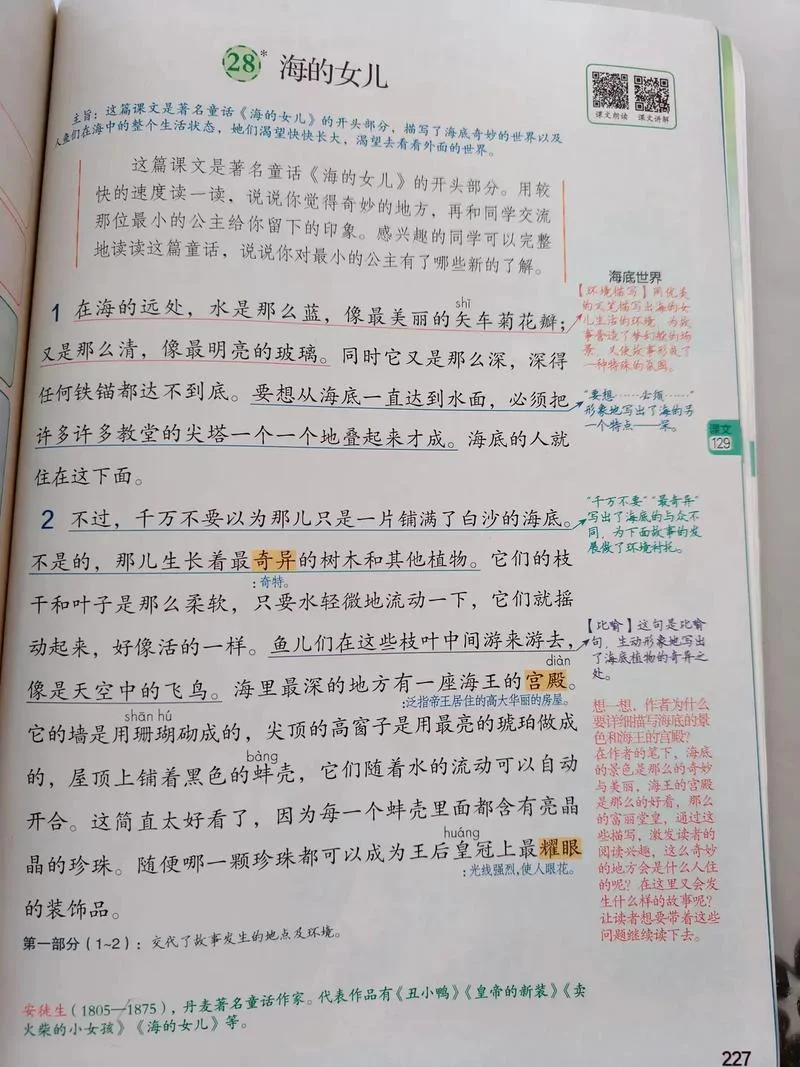 28* 海的女儿
课文朗读 课文讲解
主旨：这篇课文是著名童话《海的女儿》的开头部分，描写了海底奇妙的世界以及
人鱼们在海中的整个生活状态，她们渴望快快长大，渴望去看看外面的世界。
这篇课文是著名童话《海的女儿》的开头部分。用较
快的速度读一读，说说你觉得奇妙的地方，再和同学交流
那位最小的公主给你留下的印象。感兴趣的同学可以完整
地读读这篇童话，说说你对最小的公主有了哪些新的了解。
shǐ
1 在海的远处，水是那么蓝，像最美丽的矢车菊花瓣；
又是那么清，像最明亮的玻璃。同时它又是那么深，深得
任何铁锚都达不到底。要想从海底一直达到水面，必须把
许多许多教堂的尖塔一个一个地叠起来才成。海底的人就
住在这下面。
2 不过，千万不要以为那儿只是一片铺满了白沙的海底。
不是的，那儿生长着最奇异的树木和其他植物。它们的枝
：奇特。
干和叶子是那么柔软，只要水轻微地流动一下，它们就摇
动起来，好像活的一样。鱼儿们在这些枝叶中间游来游去，
diàn
像是天空中的飞鸟。海里最深的地方有一座海王的宫殿。
：泛指帝王居住的高大华丽的房屋。
shān hú
它的墙是用珊瑚砌成的，尖顶的高窗子是用最亮的琥珀做成
bàng
的，屋顶上铺着黑色的蚌壳，它们随着水的流动可以自动
开合。这简直太好看了，因为每一个蚌壳里面都含有亮晶
huáng
晶的珍珠。随便哪一颗珍珠都可以成为王后皇冠上最耀眼
：光线强烈，使人眼花。
的装饰品。
第一部分（1~2）：交代了故事发生的地点及环境。
安徒生（1805—1875），丹麦著名童话作家。代表作品有《丑小鸭》《皇帝的新装》《卖
火柴的小女孩》《海的女儿》等。
海底世界
【环境描写】用优美
的文笔描写出海的女
儿生活的环境，为故
事营造了梦幻般的场
景，又使故事形成了
一种特殊的氛围。
“要想……必须……”
形象地写出了海的另
一个特点——深。
课文
129
“千万不要”“最奇异”
写出了海底的与众不
同，为下面故事的发
展做了环境衬托。
【比喻】这句是比喻
句，生动形象地写出
了海底植物的奇异之
处。
想一想，作者为什么
要详细描写海底的景
色和海王的宫殿？
在作者的笔下，海底
的景色是那么的奇妙
与美丽，海王的宫殿
是那么的好看，那么
的富丽堂皇，通过这
些描写，激发读者的
阅读兴趣，这么奇妙
的地方会是什么人住
的呢？在这里又会发
生什么样的故事呢？
让读者想要带着这些
问题继续读下去。
227